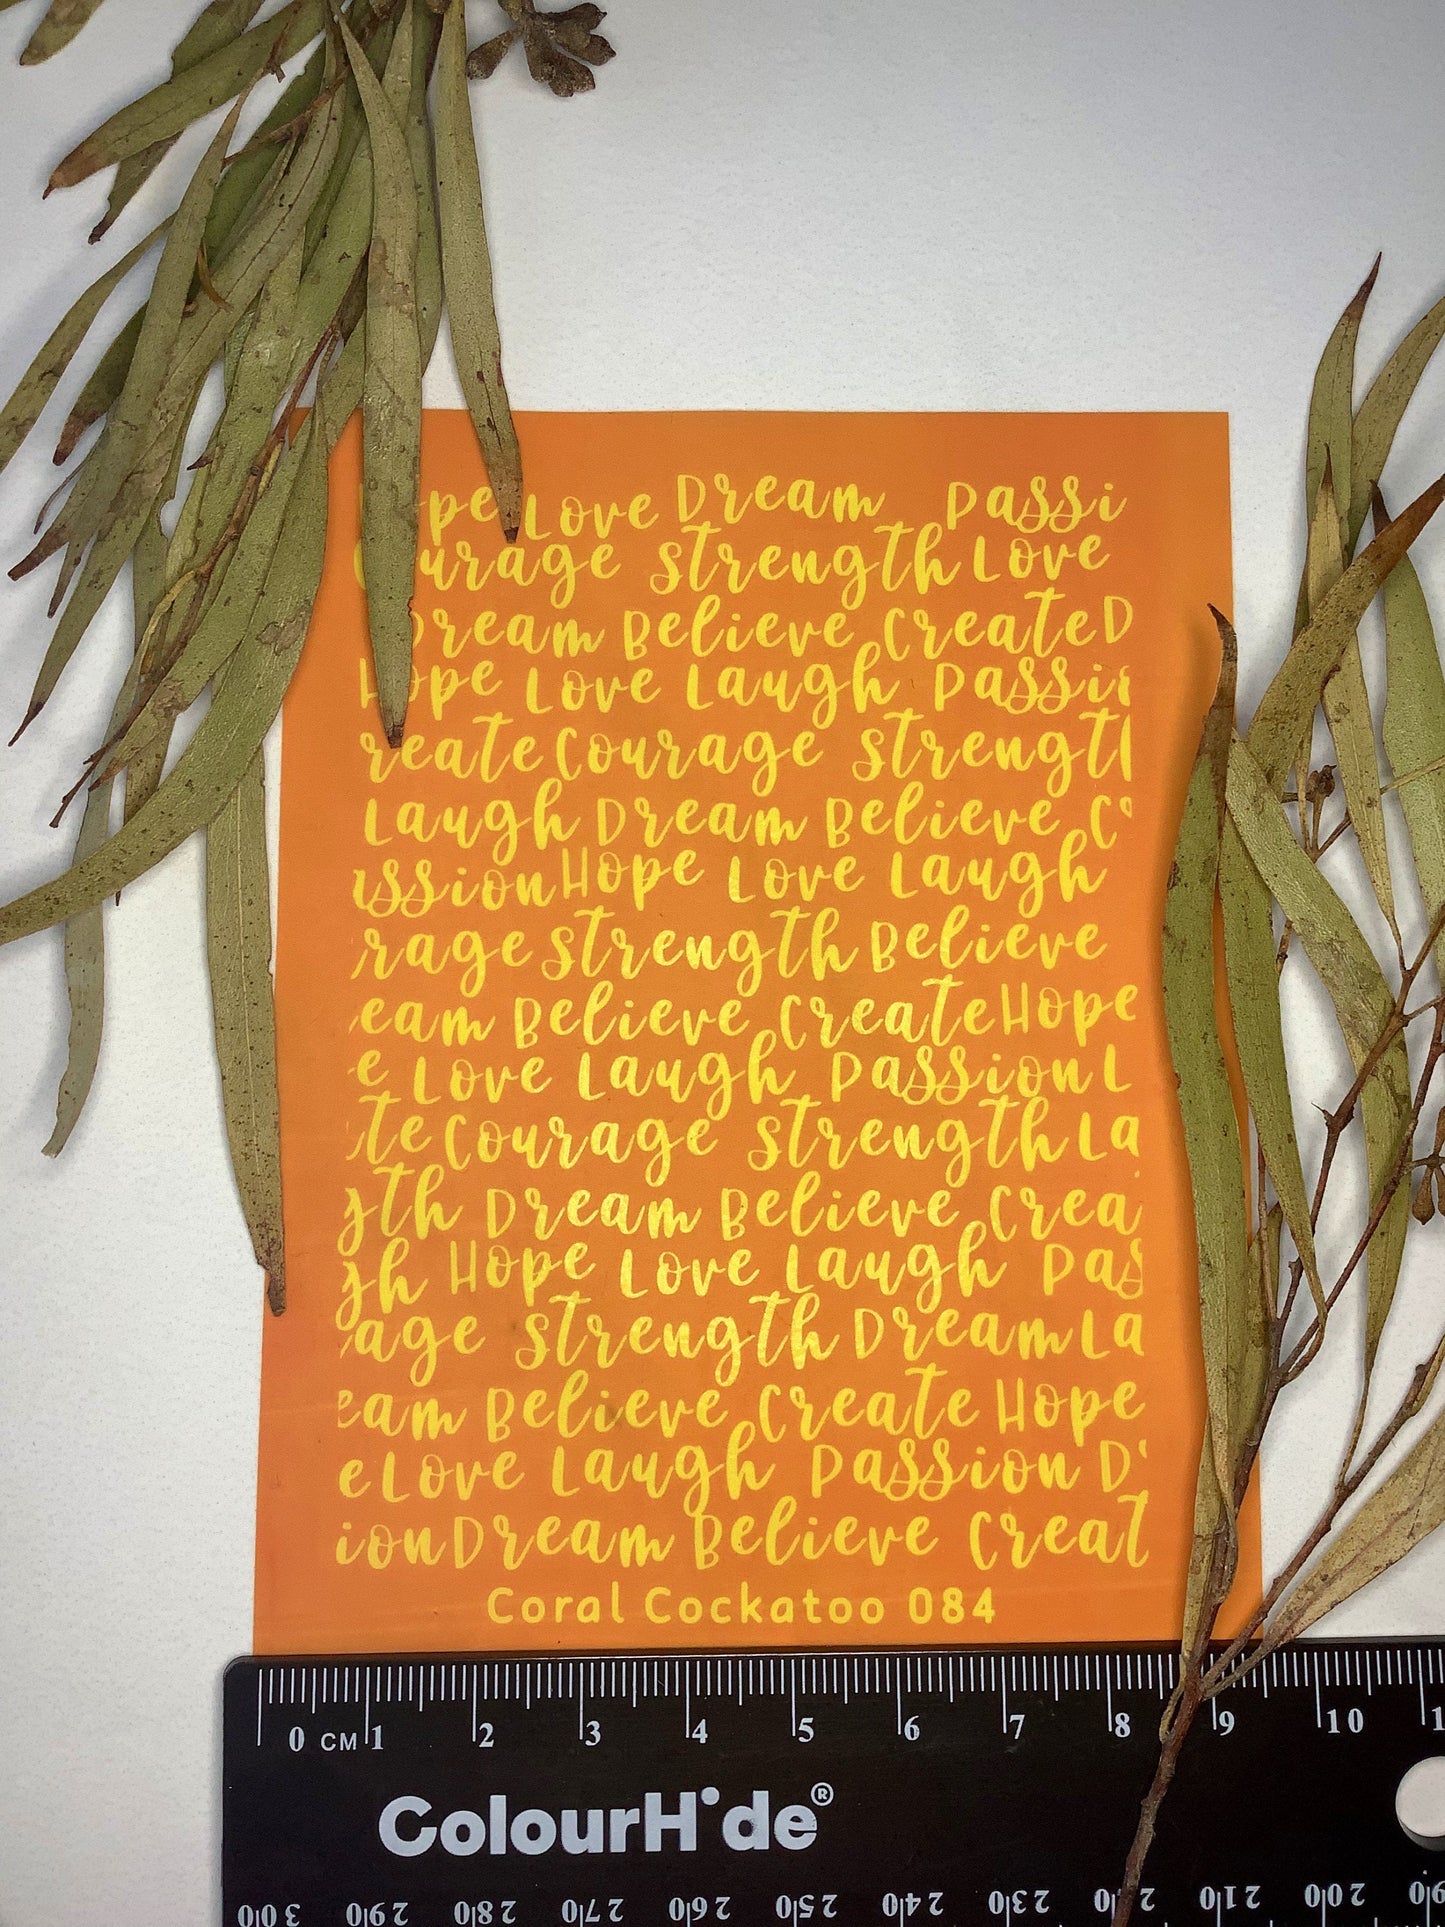 pe Love Dream Passi
urage Strength Love
Dream Believe Create D
Hope Love Laugh Passi
reate Courage Strengt
Laugh Dream Believe C
ssion Hope Love Laugh
rage Strength Believe
eam Believe Create Hope
e Love Laugh Passion L
te Courage Strength La
gth Dream Believe Crea
gh Hope Love Laugh Pas
age Strength Dream La
eam Believe Create Hope
e Love Laugh Passion D
ion Dream Believe Creat
Coral Cockatoo 084
0 CM 1 2 3 4 5 6 7 8 9 10 1
ColourHide®
300 290 280 270 260 250 240 230 220 210 200